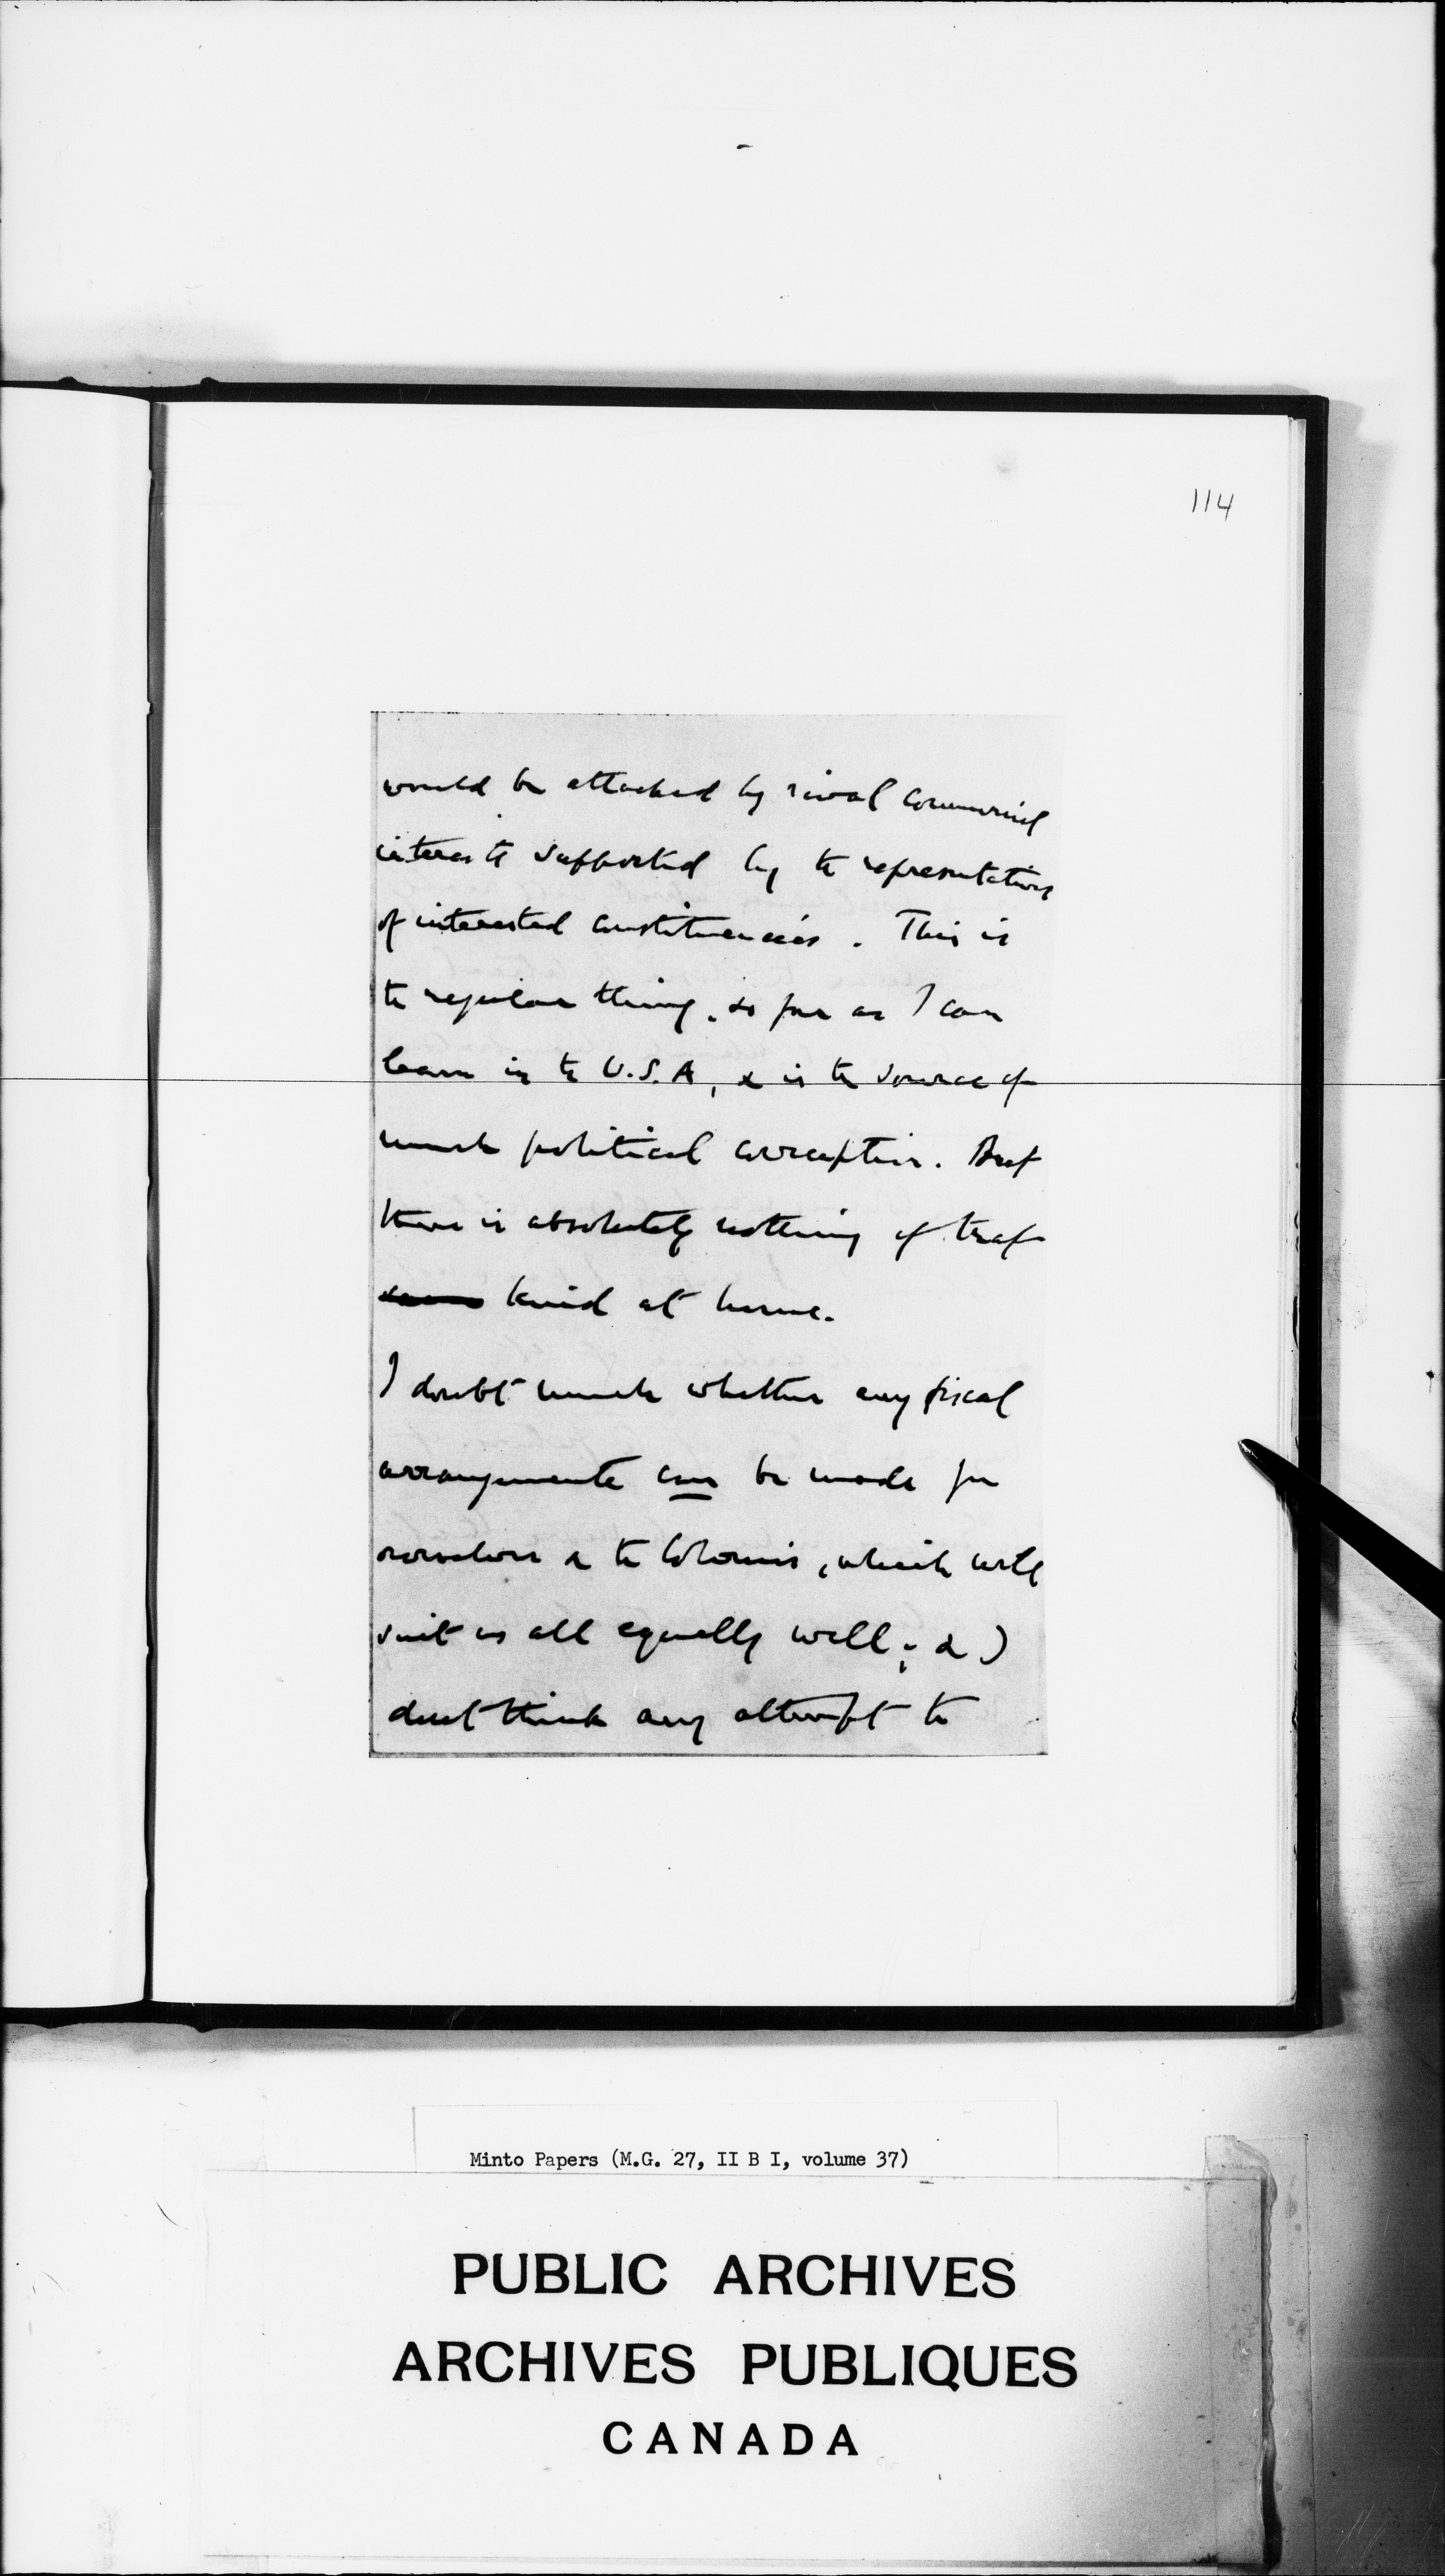 114
would be attacked by rival commercial
interests supported by the representatives
of interested constituencies. This is
the regular thing, so far as I can
learn in the U.S.A, & is the source of
much political corruption. But
there is absolutely nothing of that
kind at home.
I doubt much whether any fiscal
arrangements can be made for
ourselves & the Colonies, which will
suit us all equally well; & I
dont think any attempt to
Minto Papers (M.G. 27, II B I, volume 37)
PUBLIC ARCHIVES
ARCHIVES PUBLIQUES
CANADA